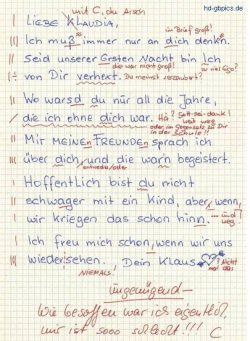 hd-gbpics.de
mit C, du Arsch
LIEBE KLAUDIA,
im Brief groß!
Ich muß immer nur an dich denkn.
Seid unserer Ersten Nacht bin Ich
die war nicht groß!
zu viel Ego?
von Dir verhext. Du meinst verzaubert?
Wo warsd du nür all die Jahre,
die ich ohne dich war. Hä? Gott-sei-dank!
weit weg
oder, im Gegensatz zu Dir
in der Schule!!
Mit MEINEn FREUNDEn sprach ich
über dich, und die warn begeistert.
entweder/oder
Hoffentlich bist du nicht
schwager mit ein Kind, aber, wenn,
wir kriegen das schon hinn. ...und weg!
Ich freu mich schon, wenn wir uns
wieder sehen. Dein Klaus
NIEMALS!
Nicht mal das
ungenügend
Wie besoffen war ich eigentlich,
mir ist sooo schlecht!!!
C